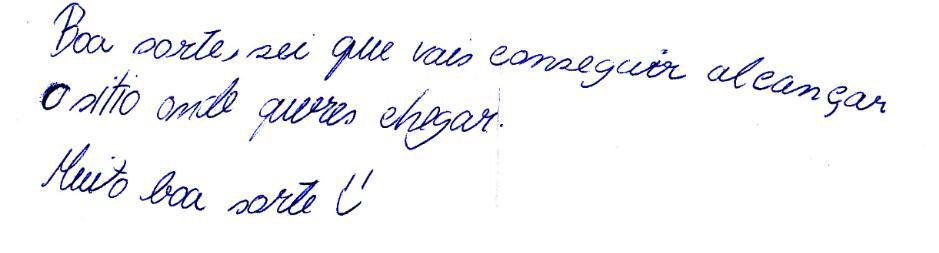 Boa sorte, sei que vais conseguir alcançar
o sitio onde queres chegar.
Muito boa sorte!